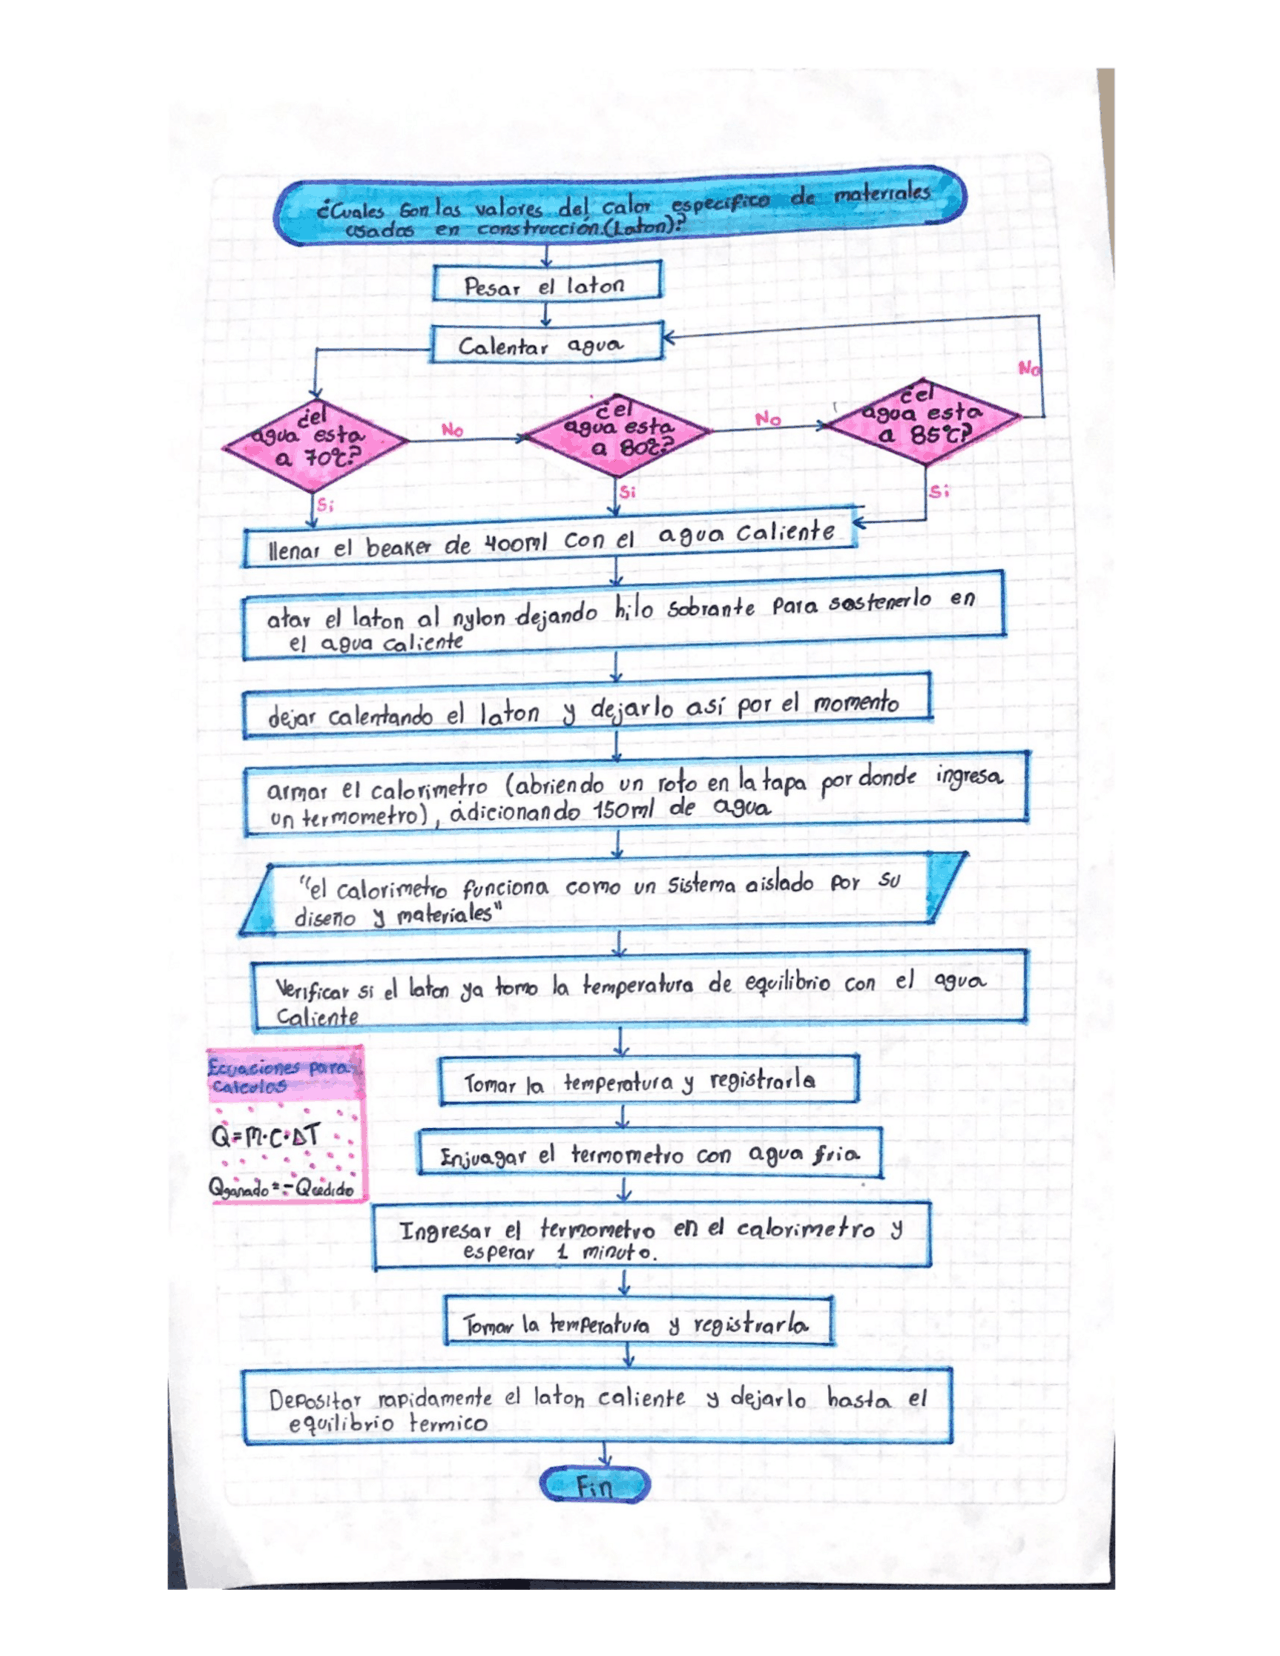 ¿Cuales son las valores del calor especifico de materiales
usados en construcción.(Laton)?
Pesar el laton
Calentar agua
No
¿el
agua esta
a 70°C?
No
¿el
agua esta
a 80°C?
No
¿el
agua esta
a 85°C?
Si
Si
Si
llenar el beaker de 400ml con el agua caliente
atar el laton al nylon dejando hilo sobrante para sostenerlo en
el agua caliente
dejar calentando el laton y dejarlo así por el momento
armar el calorimetro (abriendo un roto en la tapa por donde ingresa
un termometro), adicionando 150ml de agua
"el calorimetro funciona como un sistema aislado por su
diseño y materiales"
Verificar si el laton ya tomo la temperatura de equilibrio con el agua
caliente
Ecuaciones para
calculos
Q=m·c·ΔT
Qganado=-Qcedido
Tomar la temperatura y registrarla
Enjuagar el termometro con agua fria
Ingresar el termometro en el calorimetro y
esperar 1 minuto.
Tomar la temperatura y registrarla
Depositar rapidamente el laton caliente y dejarlo hasta el
equilibrio termico
Fin